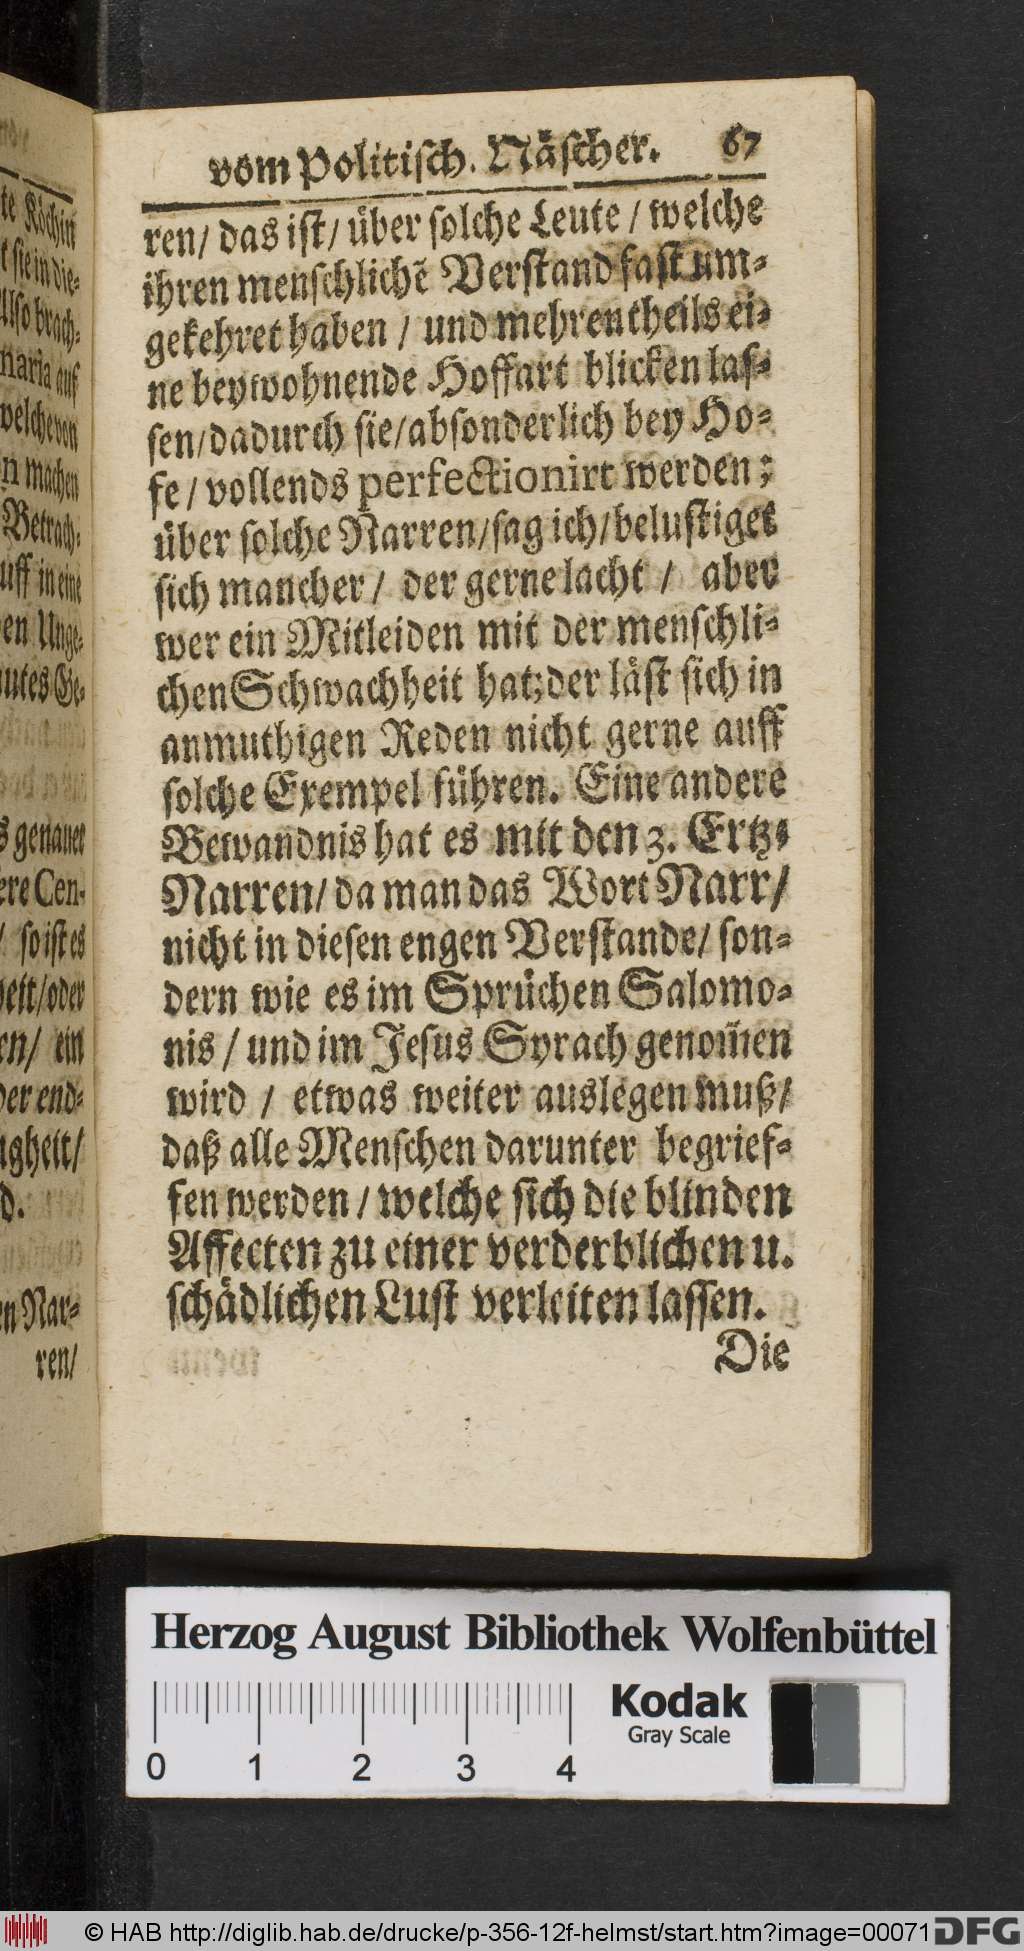 vom Politisch. Näscher. 67
ren/ das ist/ über solche Leute / welche
ihren menschlichẽ Verstand fast um-
gekehret haben / und mehrentheils ei-
ne beywohnende Hoffart blicken las-
sen/dadurch sie/absonderlich bey Ho-
fe / vollends perfectionirt werden;
über solche Narren/sag ich/belustiget
sich mancher / der gerne lacht / aber
wer ein Mitleiden mit der menschli-
chen Schwachheit hat; der läst sich in
anmuthigen Reden nicht gerne auff
solche Exempel führen. Eine andere
Bewandnis hat es mit den 3. Ertz-
Narren/ da man das Wort Narr/
nicht in diesen engen Verstande/ son-
dern wie es im Sprüchen Salomo-
nis / und im Jesus Syrach genom̃en
wird / etwas weiter auslegen muß/
daß alle Menschen darunter begrief-
fen werden / welche sich die blinden
Affecten zu einer verderblichen u.
schädlichen Lust verleiten lassen.
Die
te Köchin
t sie in die-
Also brach-
naria auf
welche von
n machen
Betrach-
uff in eine
en Unge-
utes Ge-
s genauer
ere Cen-
/ so ist es
heit/oder
en/ ein
der end-
igheit/
d.
en Nar-
ren/
Herzog August Bibliothek Wolfenbüttel
Kodak
Gray Scale
0 1 2 3 4
© HAB http://diglib.hab.de/drucke/p-356-12f-helmst/start.htm?image=00071
DFG